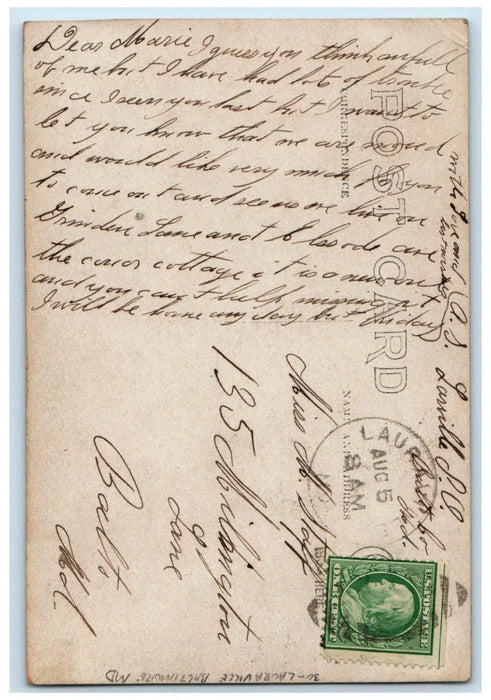 Dear Marie I guess you think awfull
of me but I have had lots of trouble
since I seen you last but I want to
let you know that we are moved
and would like very much for you
to come out and see us we live on
Grinden Lane and
the corner cottage it is a new one
and you can't help missing it
I will be home any day but Friday
with love and
POST CARD
CORRESPONDENCE
NAME AND ADDRESS
Miss M.
135 Milington
Lane
Balto
Md.
LAUR
AUG 5
8 AM
U.S. POSTAGE
ONE CENT
30 - LAURAVILLE BALTIMORE MD